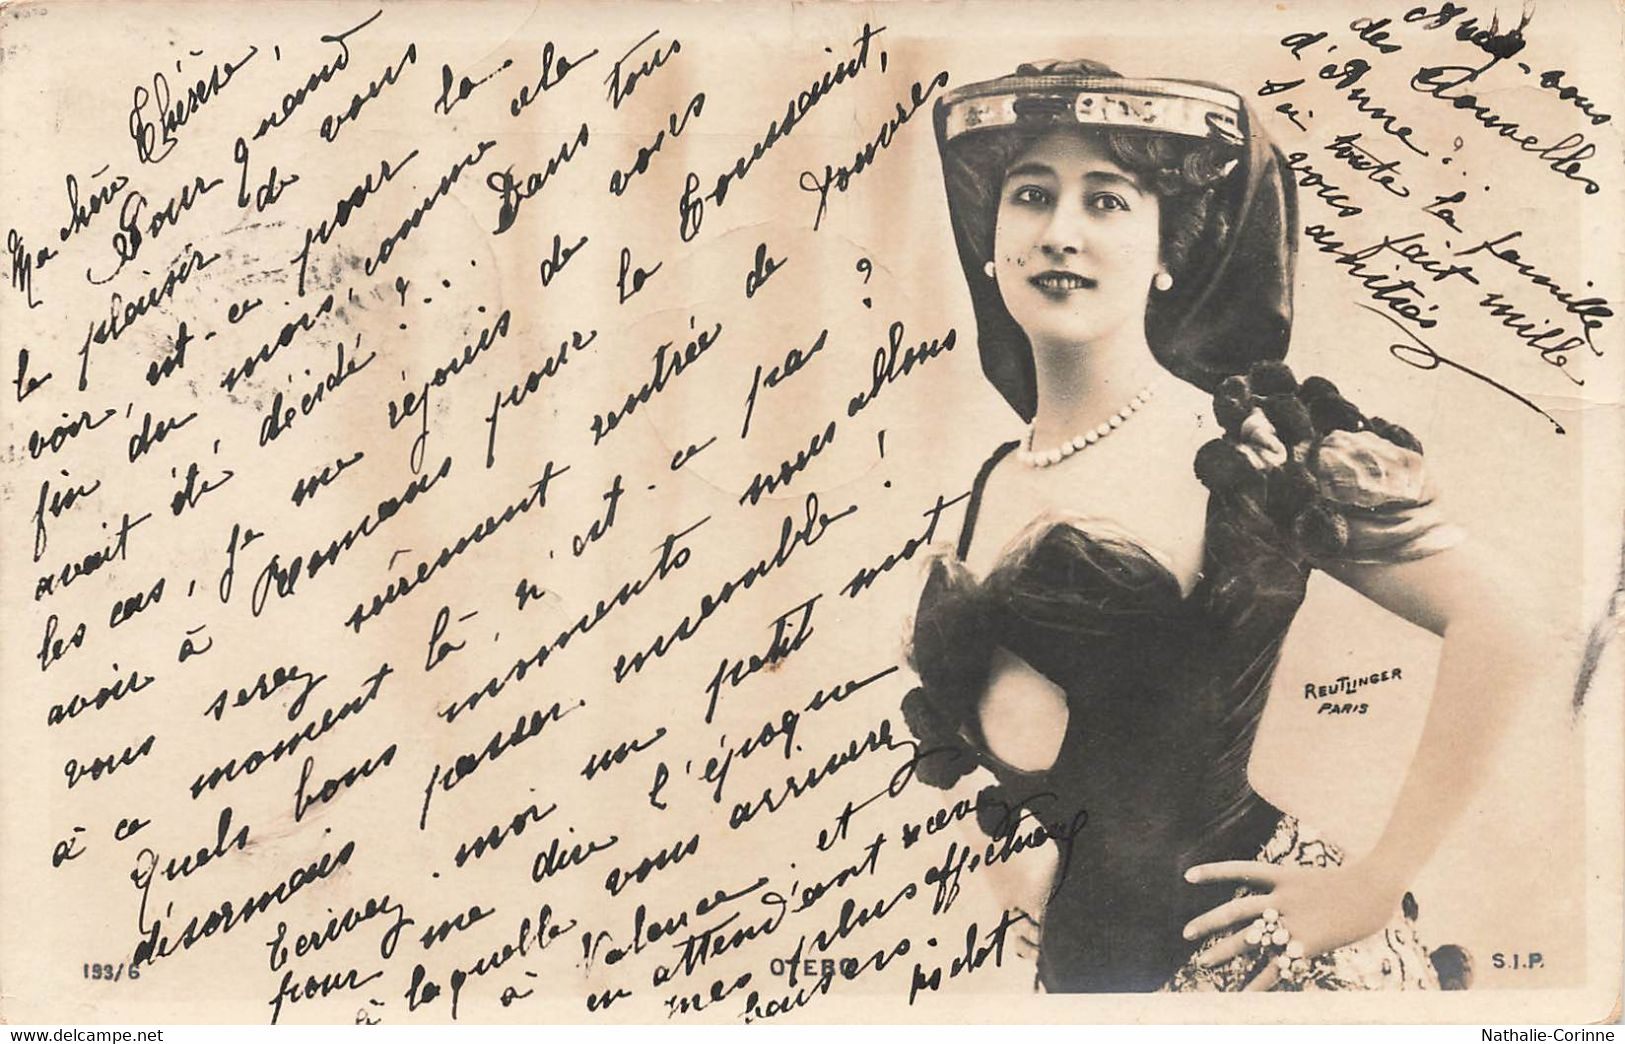 Ma chère Thérèse,
Pour quand
le plaisir de vous
voir, est-ce pour la
fin du mois, comme cela
avait été décidé ?.. Dans tous
les cas, je me réjouis de vous
avoir à Romans pour la Toussaint,
vous serez sûrement rentrée de
à ce moment là, n'est-ce pas ?
Quels bons moments nous allons
désormais passer ensemble !
Ecrivez-moi un petit mot
pour me dire l'époque
à laquelle vous arriverez
à Valence, et
en attendant recevez
mes plus affectueux
baisers.
Avez-vous
des nouvelles
d'Anne ?..
Ici toute la famille
vous fait mille
amitiés
REUTLINGER
PARIS
193/6
OTERO
S.I.P.
Nathalie-Corinne